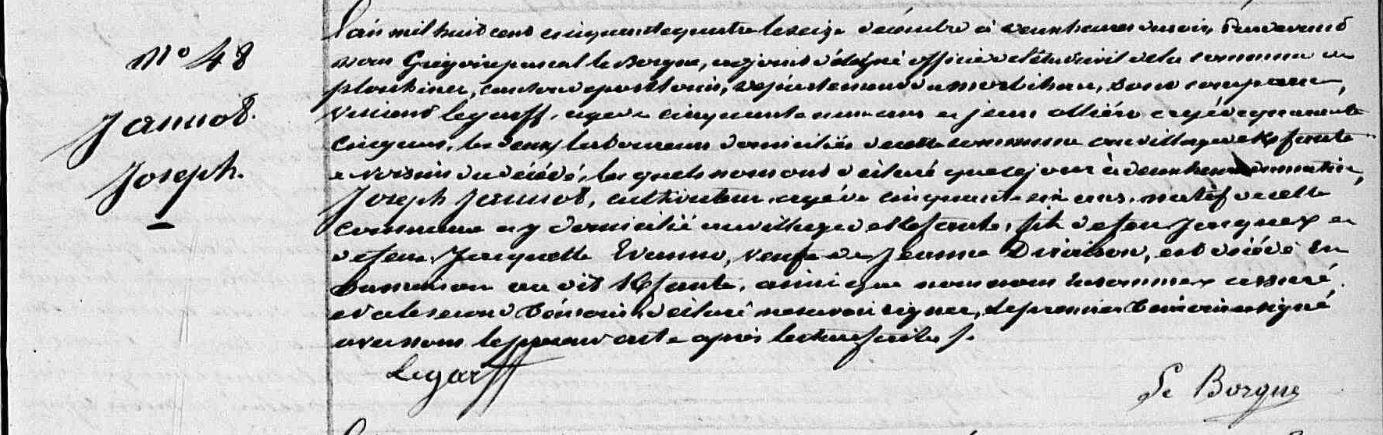 N° 48
Jannot
Joseph.
L'an mil huit cent cinquante quatre le seize décembre à deux heures du soir, Pardevant
nous Grégoire pascal le Borgne, adjoint délégué officier de l'état civil de la commune de
plouhinec, canton de port louis, département du morbihan, sont comparu,
Vincent legarff, agé de cinquante ans et jean agé de cinquante
cinq ans, les deux laboureurs domiciliés de cette commune au village de
et voisins du décédé, les quels nous ont déclaré que ce jour à deux heures du matin,
Joseph Jannot, cultivateur, agé de cinquante six ans, natif de cette
commune et y domicilié au village de fils de feu Jacques et
de feue Jacquette Evanno, veuf de Jeanne est décédé en
sa maison au dit ainsi que nous nous en sommes assuré.
et a le second témoin déclaré ne savoir signer, le premier témoin a signé
avec nous le présent acte après lecture faite /.
Legarff
Le Borgne